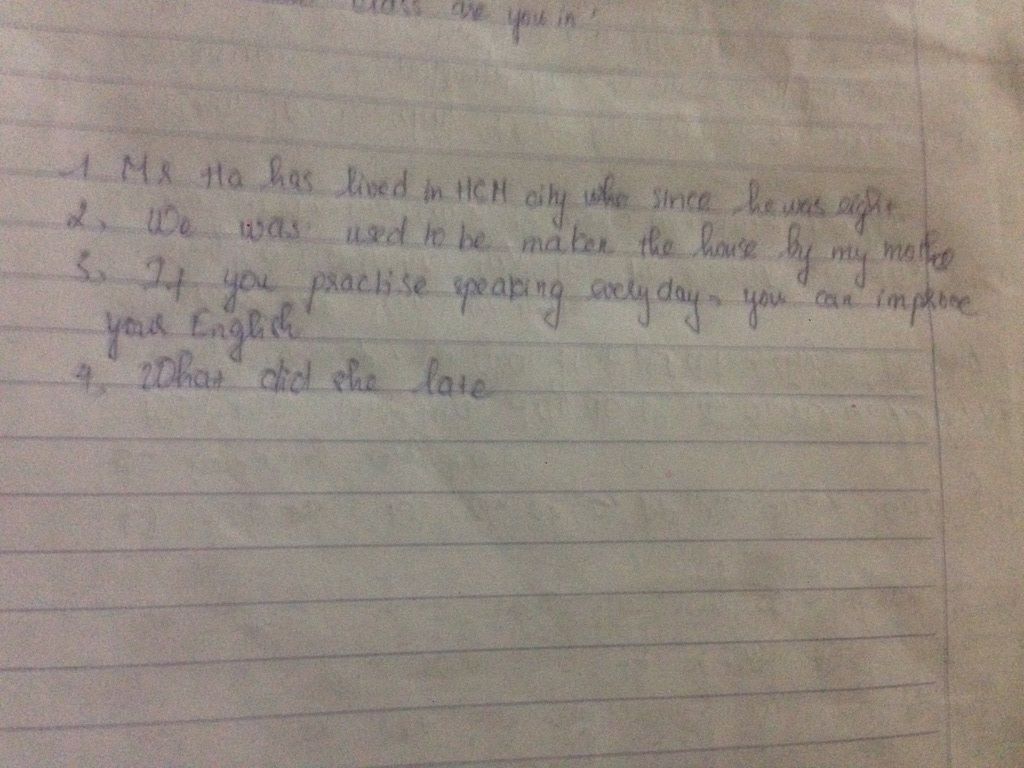 class are you in?
1 Mr Ha has lived in HCM city who since he was eight
2, We was used to be maken the house by my mothe
3, If you practise speaking everyday, you can improve
your English
4, What did she late